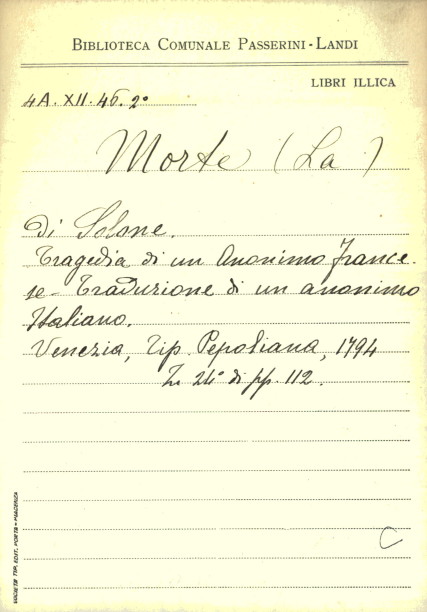 BIBLIOTECA COMUNALE PASSERINI-LANDI
LIBRI ILLICA
4A. XII. 46. 2°
Morte (La)
Di Solone.
Tragedia di un Anonimo France-
se - Traduzione di un anonimo
Italiano.
Venezia, Tip. Pepoliana, 1794
In 24° di pp. 112.
C
SOCIETÀ TIP. EDIT. PORTA - PIACENZA